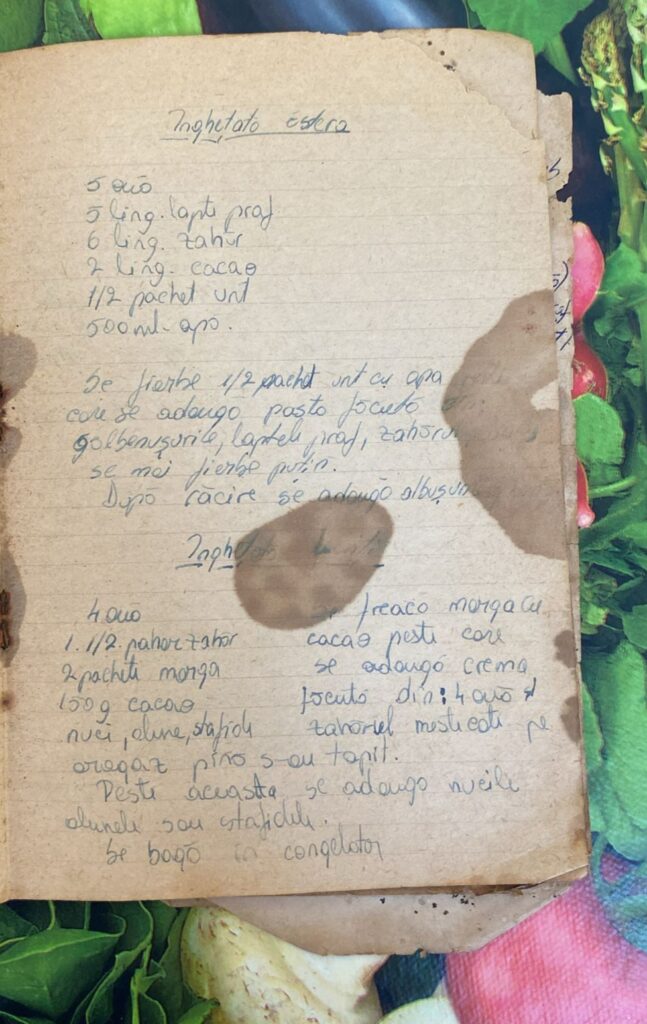 Înghețată Estera
5 ouă
5 ling. lapte praf
6 ling. zahăr
2 ling. cacao
1/2 pachet unt
500 ml. apă.
Se fierbe 1/2 pachet unt cu apa
care se adaugă pasta făcută
gălbenușurile, laptele praf, zahărul
se mai fierbe puțin.
După răcire se adaugă albușurile
Înghețată
4 ouă
1. 1/2. pahar zahăr
2 pachete marga
150 g cacao
nuci, alune, stafide
freacă marga cu
cacao peste care
se adaugă crema
făcută din: 4 ouă și
zahărul mestecate pe
aragaz pînă s-au topit.
Peste aceasta se adaugă nucile
alunele sau stafidele.
Se bagă în congelator